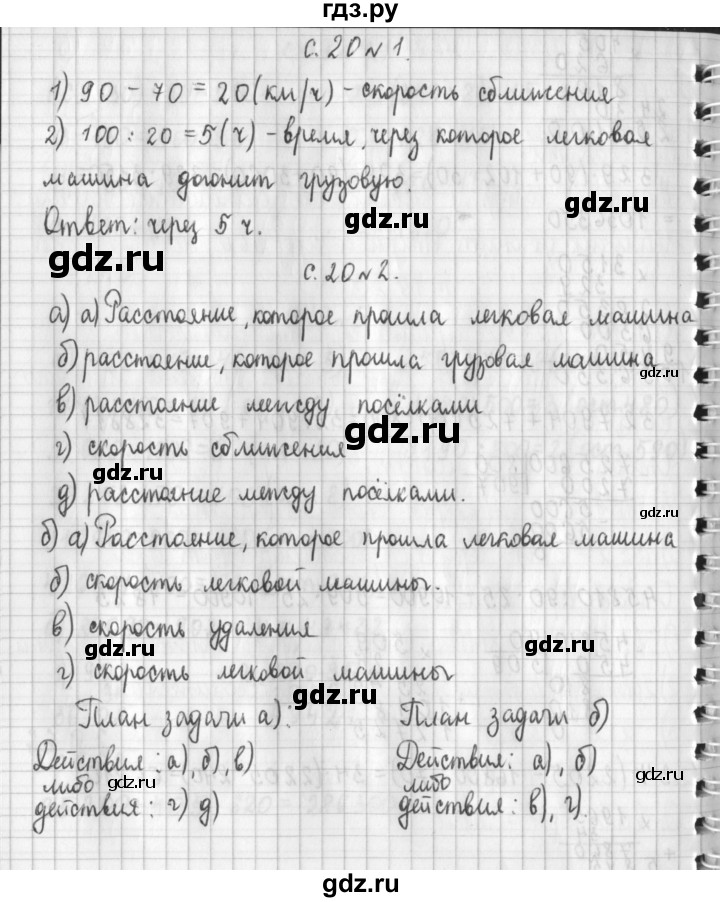 гдз.ру
с. 20 № 1.
1) 90 - 70 = 20 (км/ч) - скорость сближения
2) 100 : 20 = 5 (ч) - время, через которое легковая
машина догонит грузовую.
gdz.ru
gdz.ru
Ответ: через 5 ч.
gdz.ru
с. 20 № 2.
а) а) Расстояние, которое прошла легковая машина
б) расстояние, которое прошла грузовая машина
gdz.ru
в) расстояние между посёлками
gdz.ru
г) скорость сближения
gdz.ru
д) расстояние между посёлками.
gdz.ru
б) а) Расстояние, которое прошла легковая машина
б) скорость легковой машины.
в) скорость удаления
gdz.ru
gdz.ru
г) скорость легковой машины
gdz.ru
План задачи а): План задачи б)
Действия: а), б), в) Действия: а), б)
либо либо
gdz.ru
gdz.ru
действия: г) д) действия: в), г).
gdz.ru